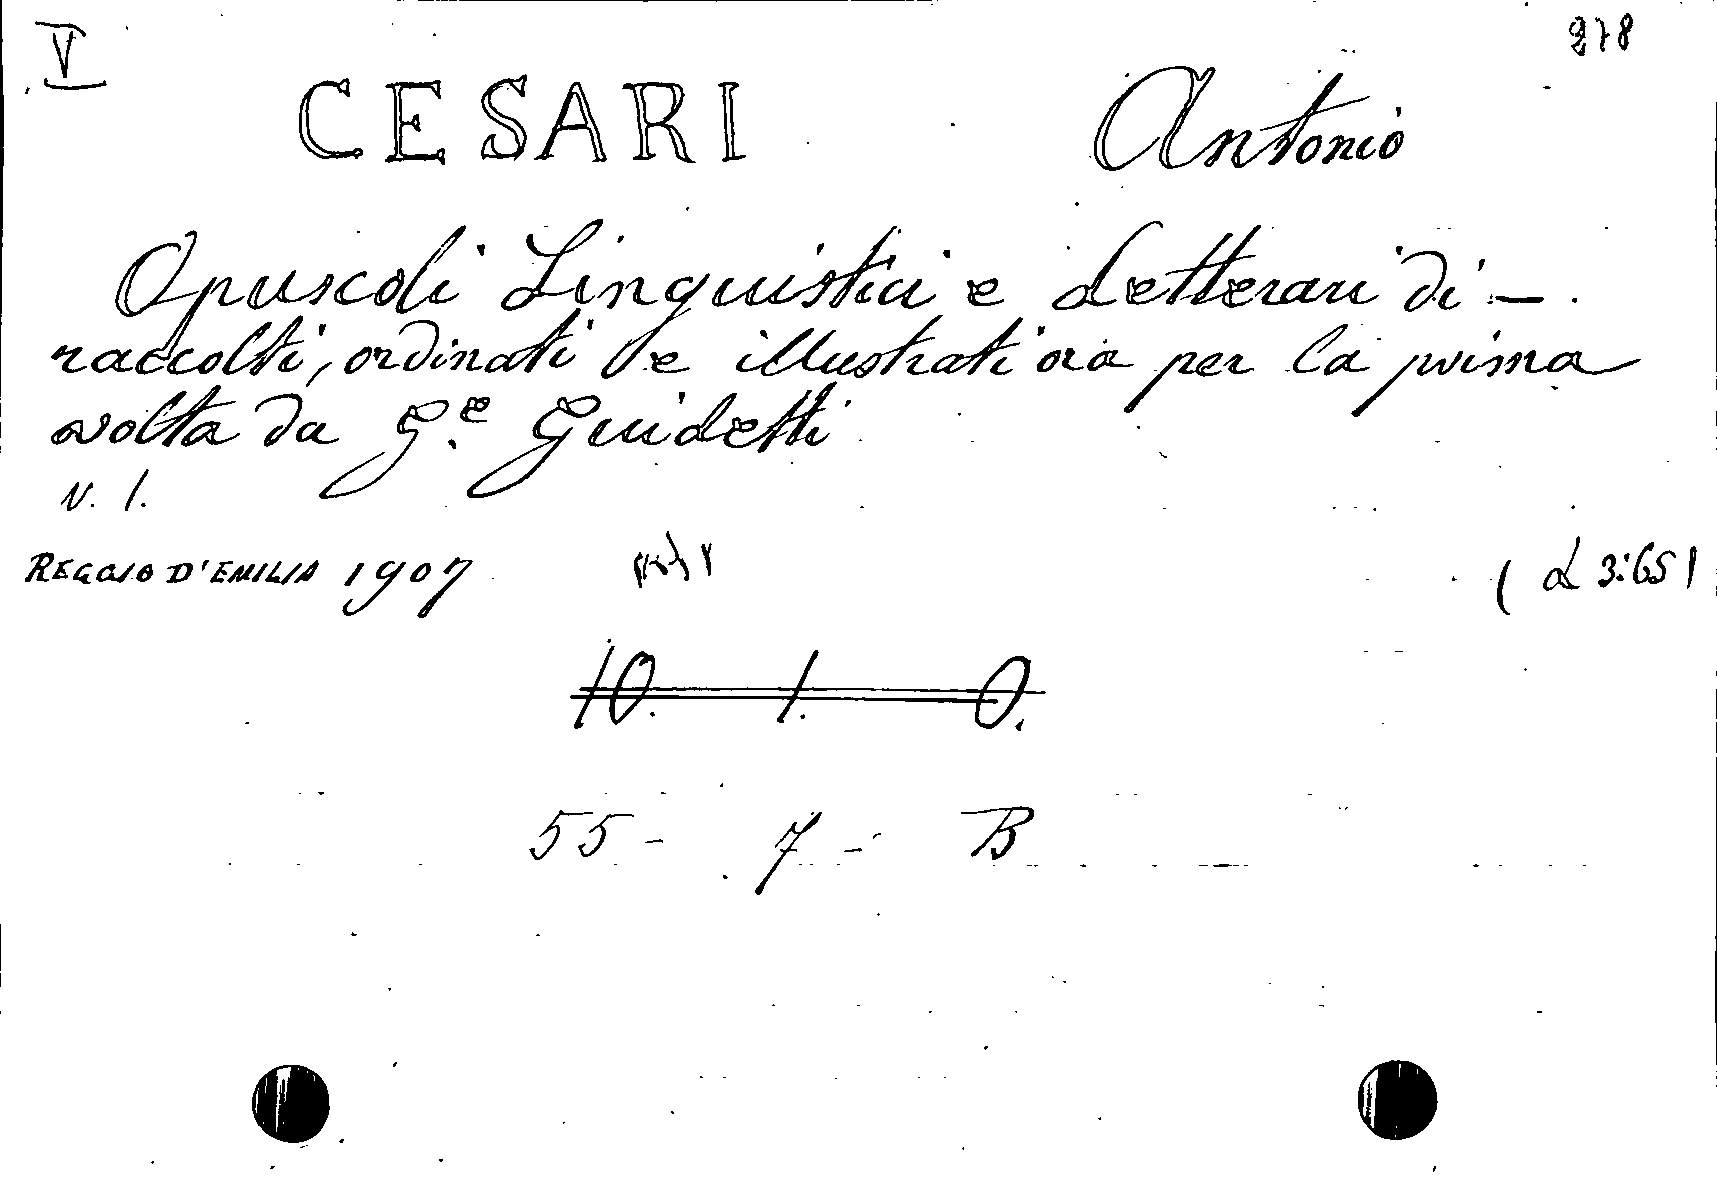 V 278
CESARI Antonio
Opuscoli Linguistici e Letterari di —
raccolti, ordinati e illustrati ora per la prima
volta da G.e Guidetti
V. 1.
REGGIO D'EMILIA 1907 (L 3:65)
10. 1. 0.
55 - 7 - B